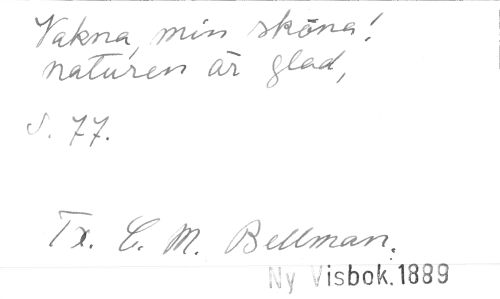 Vakna, min sköna!
naturen är glad,
S. 77.
Tx. C. M. Bellman.
Ny Visbok. 1889